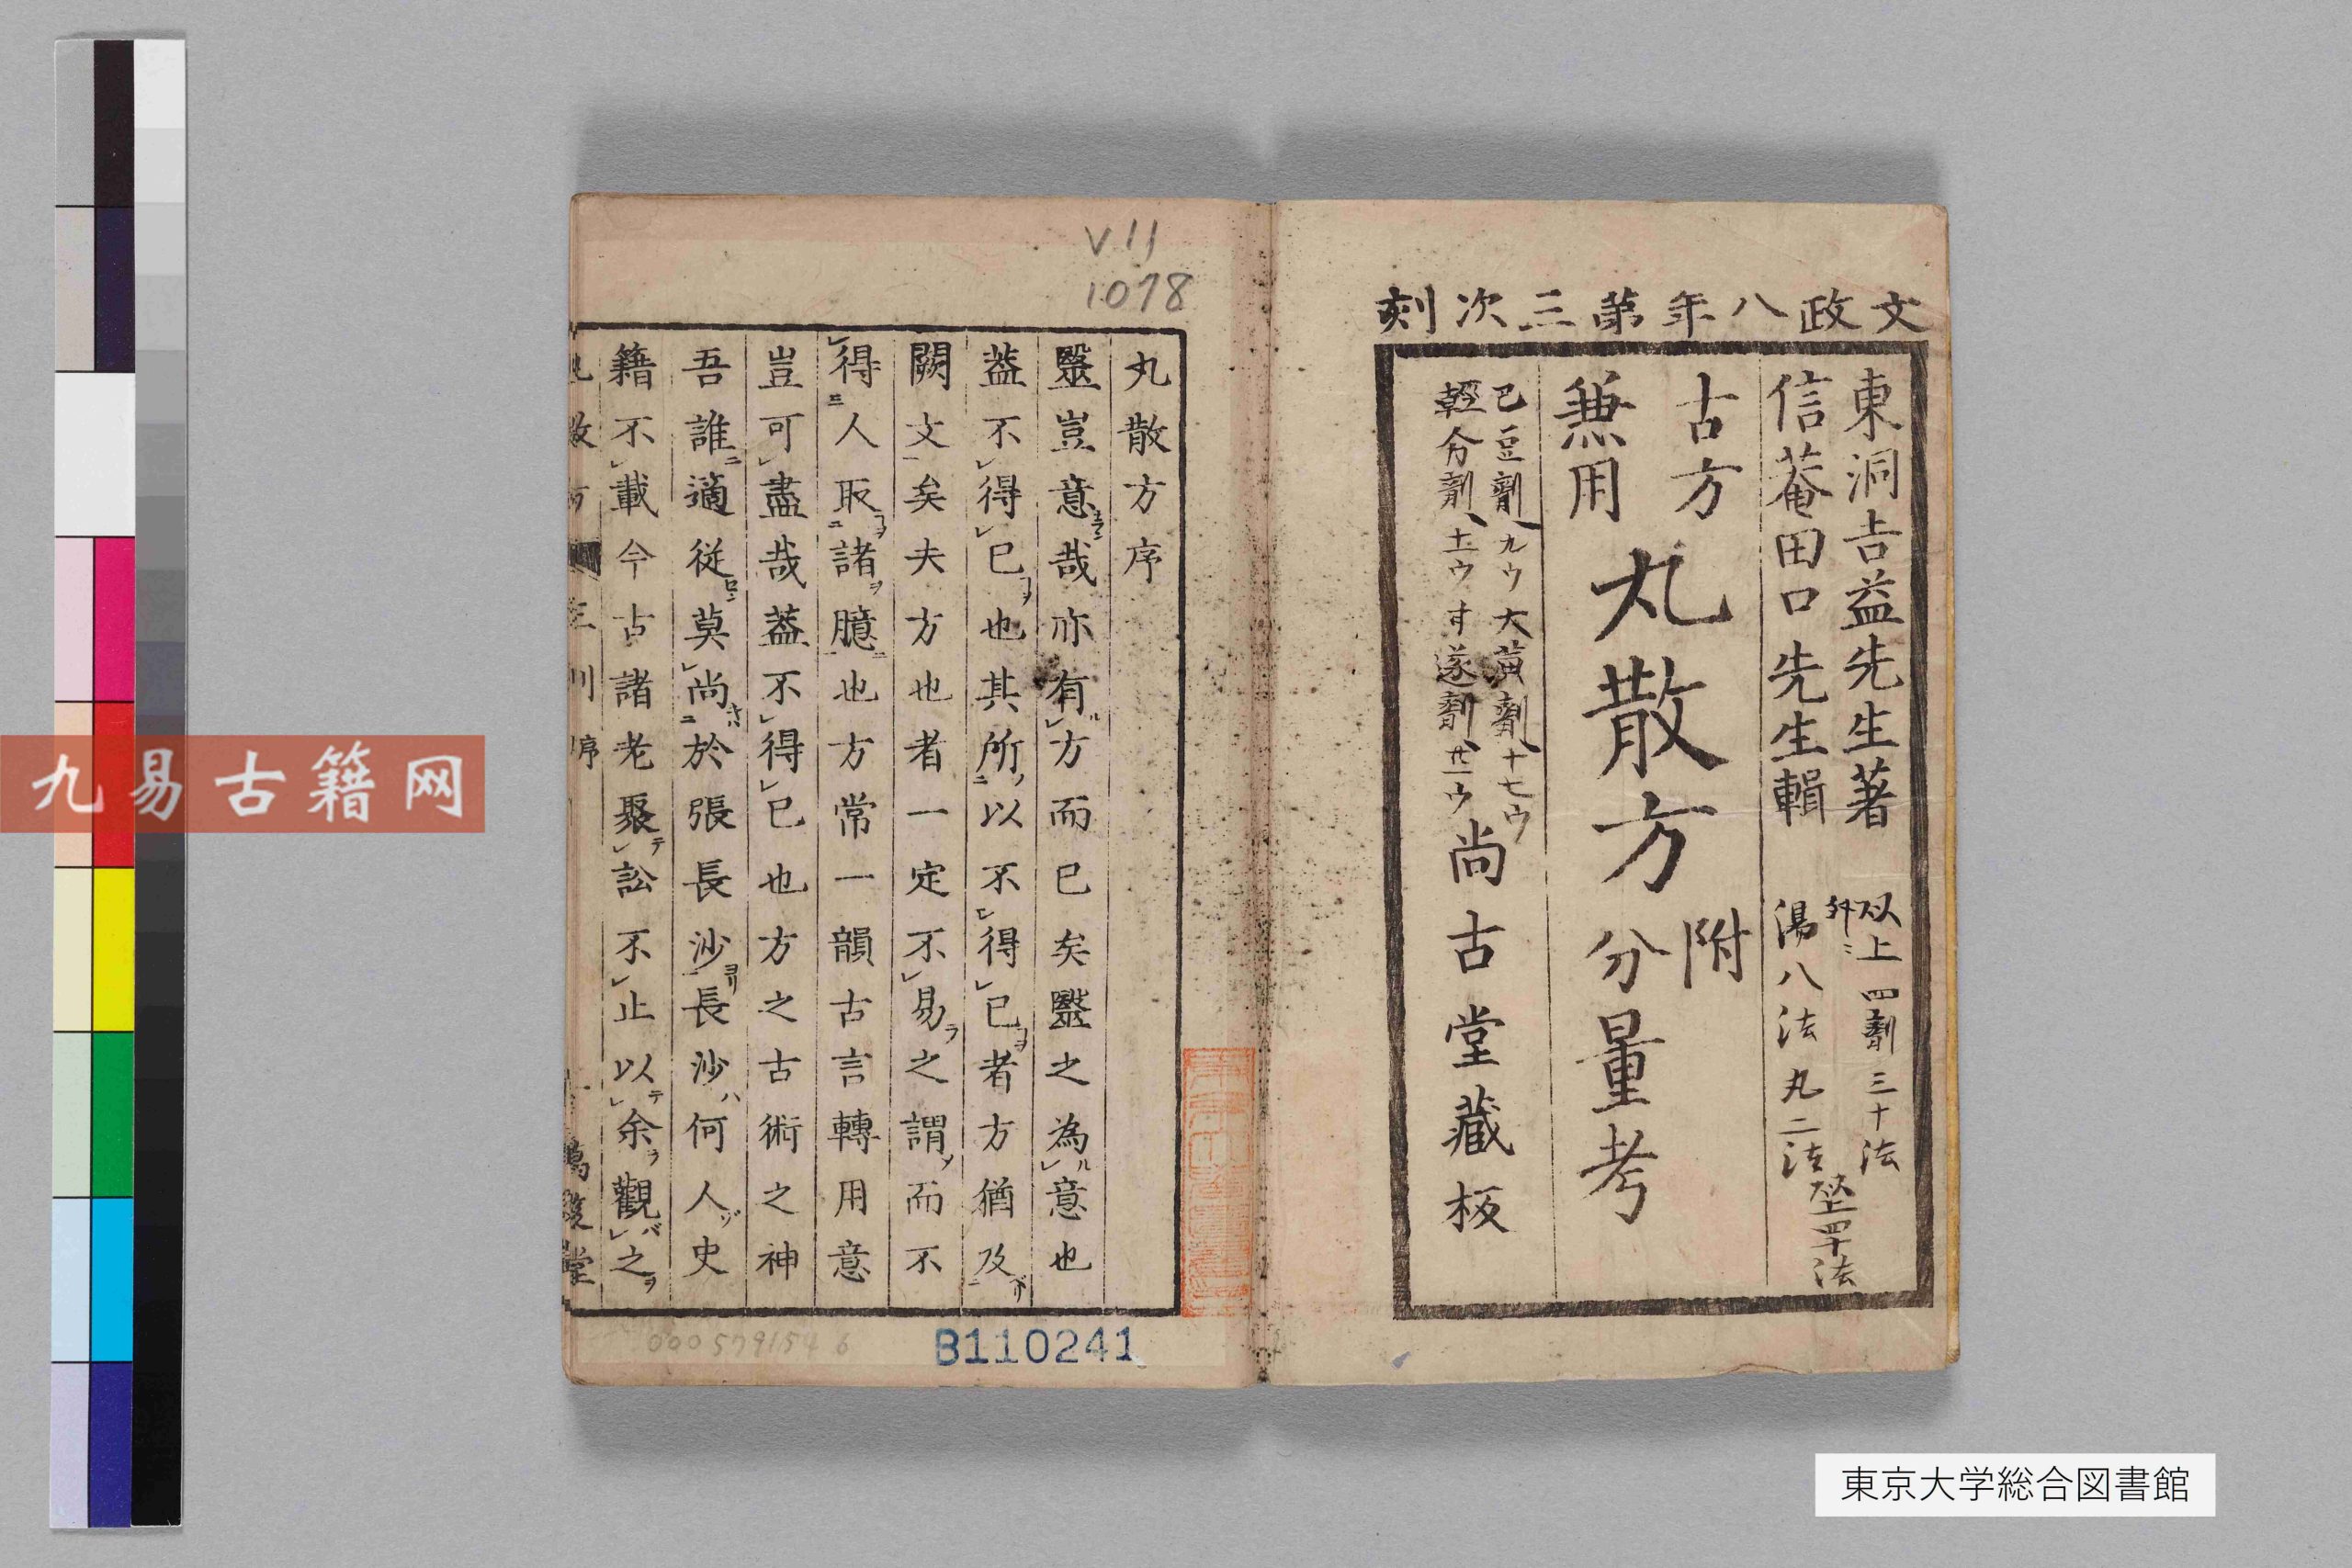 文政八年第三次刻
東洞吉益先生著
信菴田口先生輯
以上四劑三十法
外ニ
湯八法丸二法
四十法
古方
兼用
丸散方
附
分量考
巴豆劑九ウ大黄劑十七ウ
輕粉劑
尚古堂藏板
V11
1078
丸散方序
毉豈意哉亦有方而已矣毉之為意也
葢不得已也其所以不得已者方猶及
闕文矣夫方也者一定不易之謂而不
得人取諸臆也方常一韻古言轉用意
豈可盡哉葢不得已也方之古術之神
吾誰適從莫尚於張長沙長沙何人史
籍不載今古諸老聚訟不止以余觀之
序
B110241
九易古籍网
東京大学総合図書館